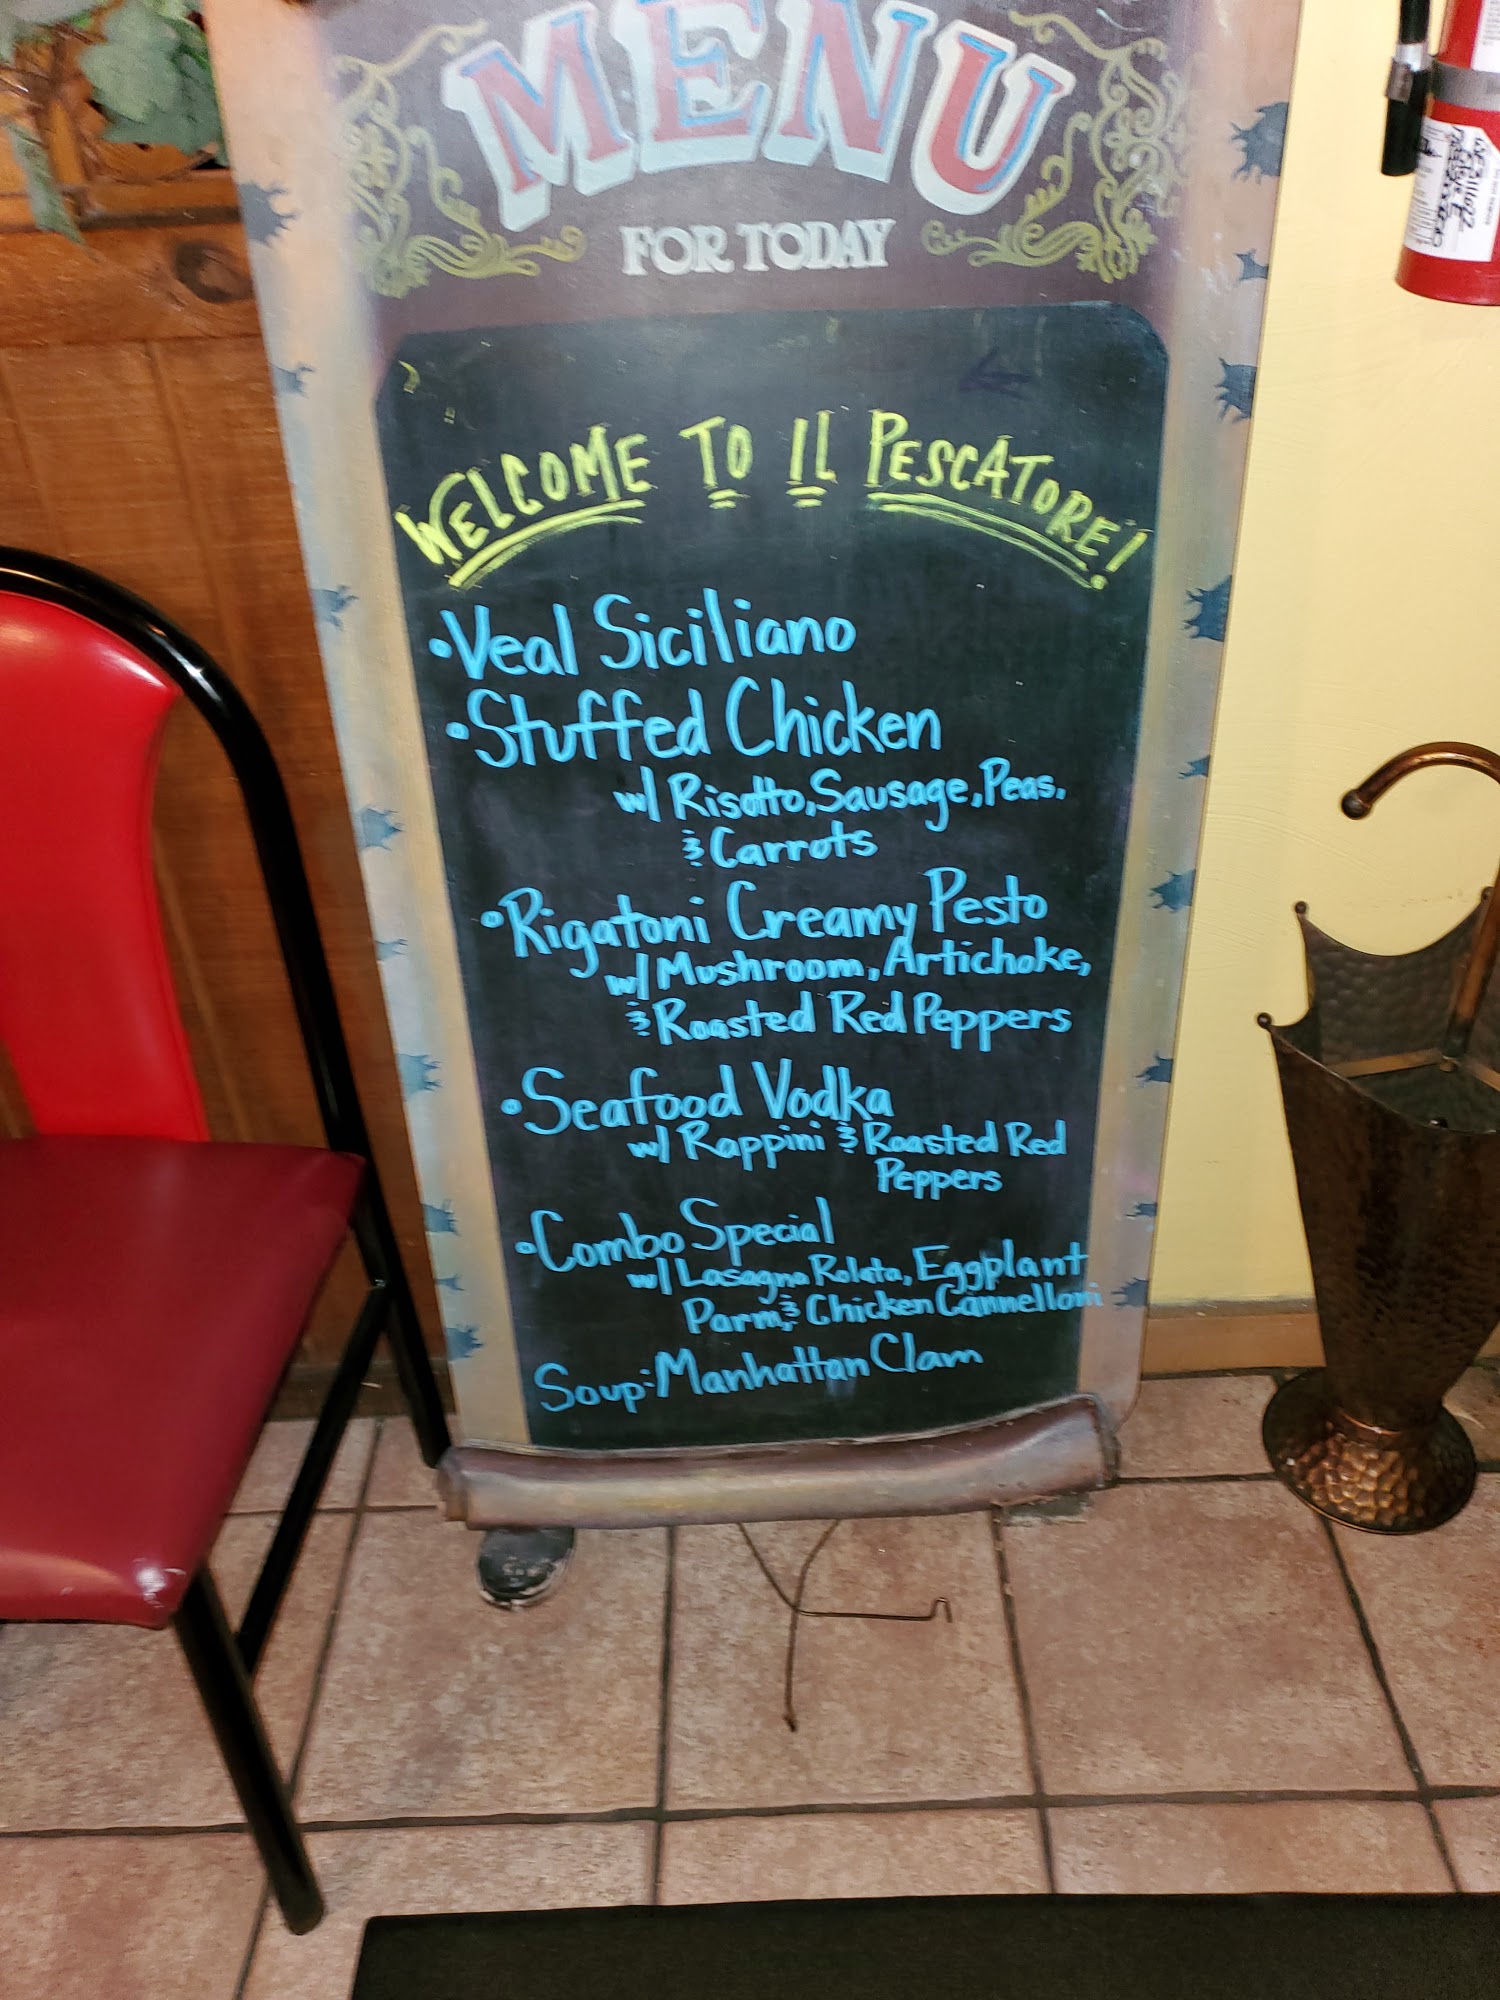 MENU
FOR TODAY
WELCOME TO IL PESCATORE!
• Veal Siciliano
• Stuffed Chicken
w/ Risotto, Sausage, Peas,
& Carrots
• Rigatoni Creamy Pesto
w/ Mushroom, Artichoke,
& Roasted Red Peppers
• Seafood Vodka
w/ Rappini & Roasted Red
Peppers
• Combo Special
w/ Lasagna Rolata, Eggplant
Parm, & Chicken Cannelloni
Soup: Manhattan Clam